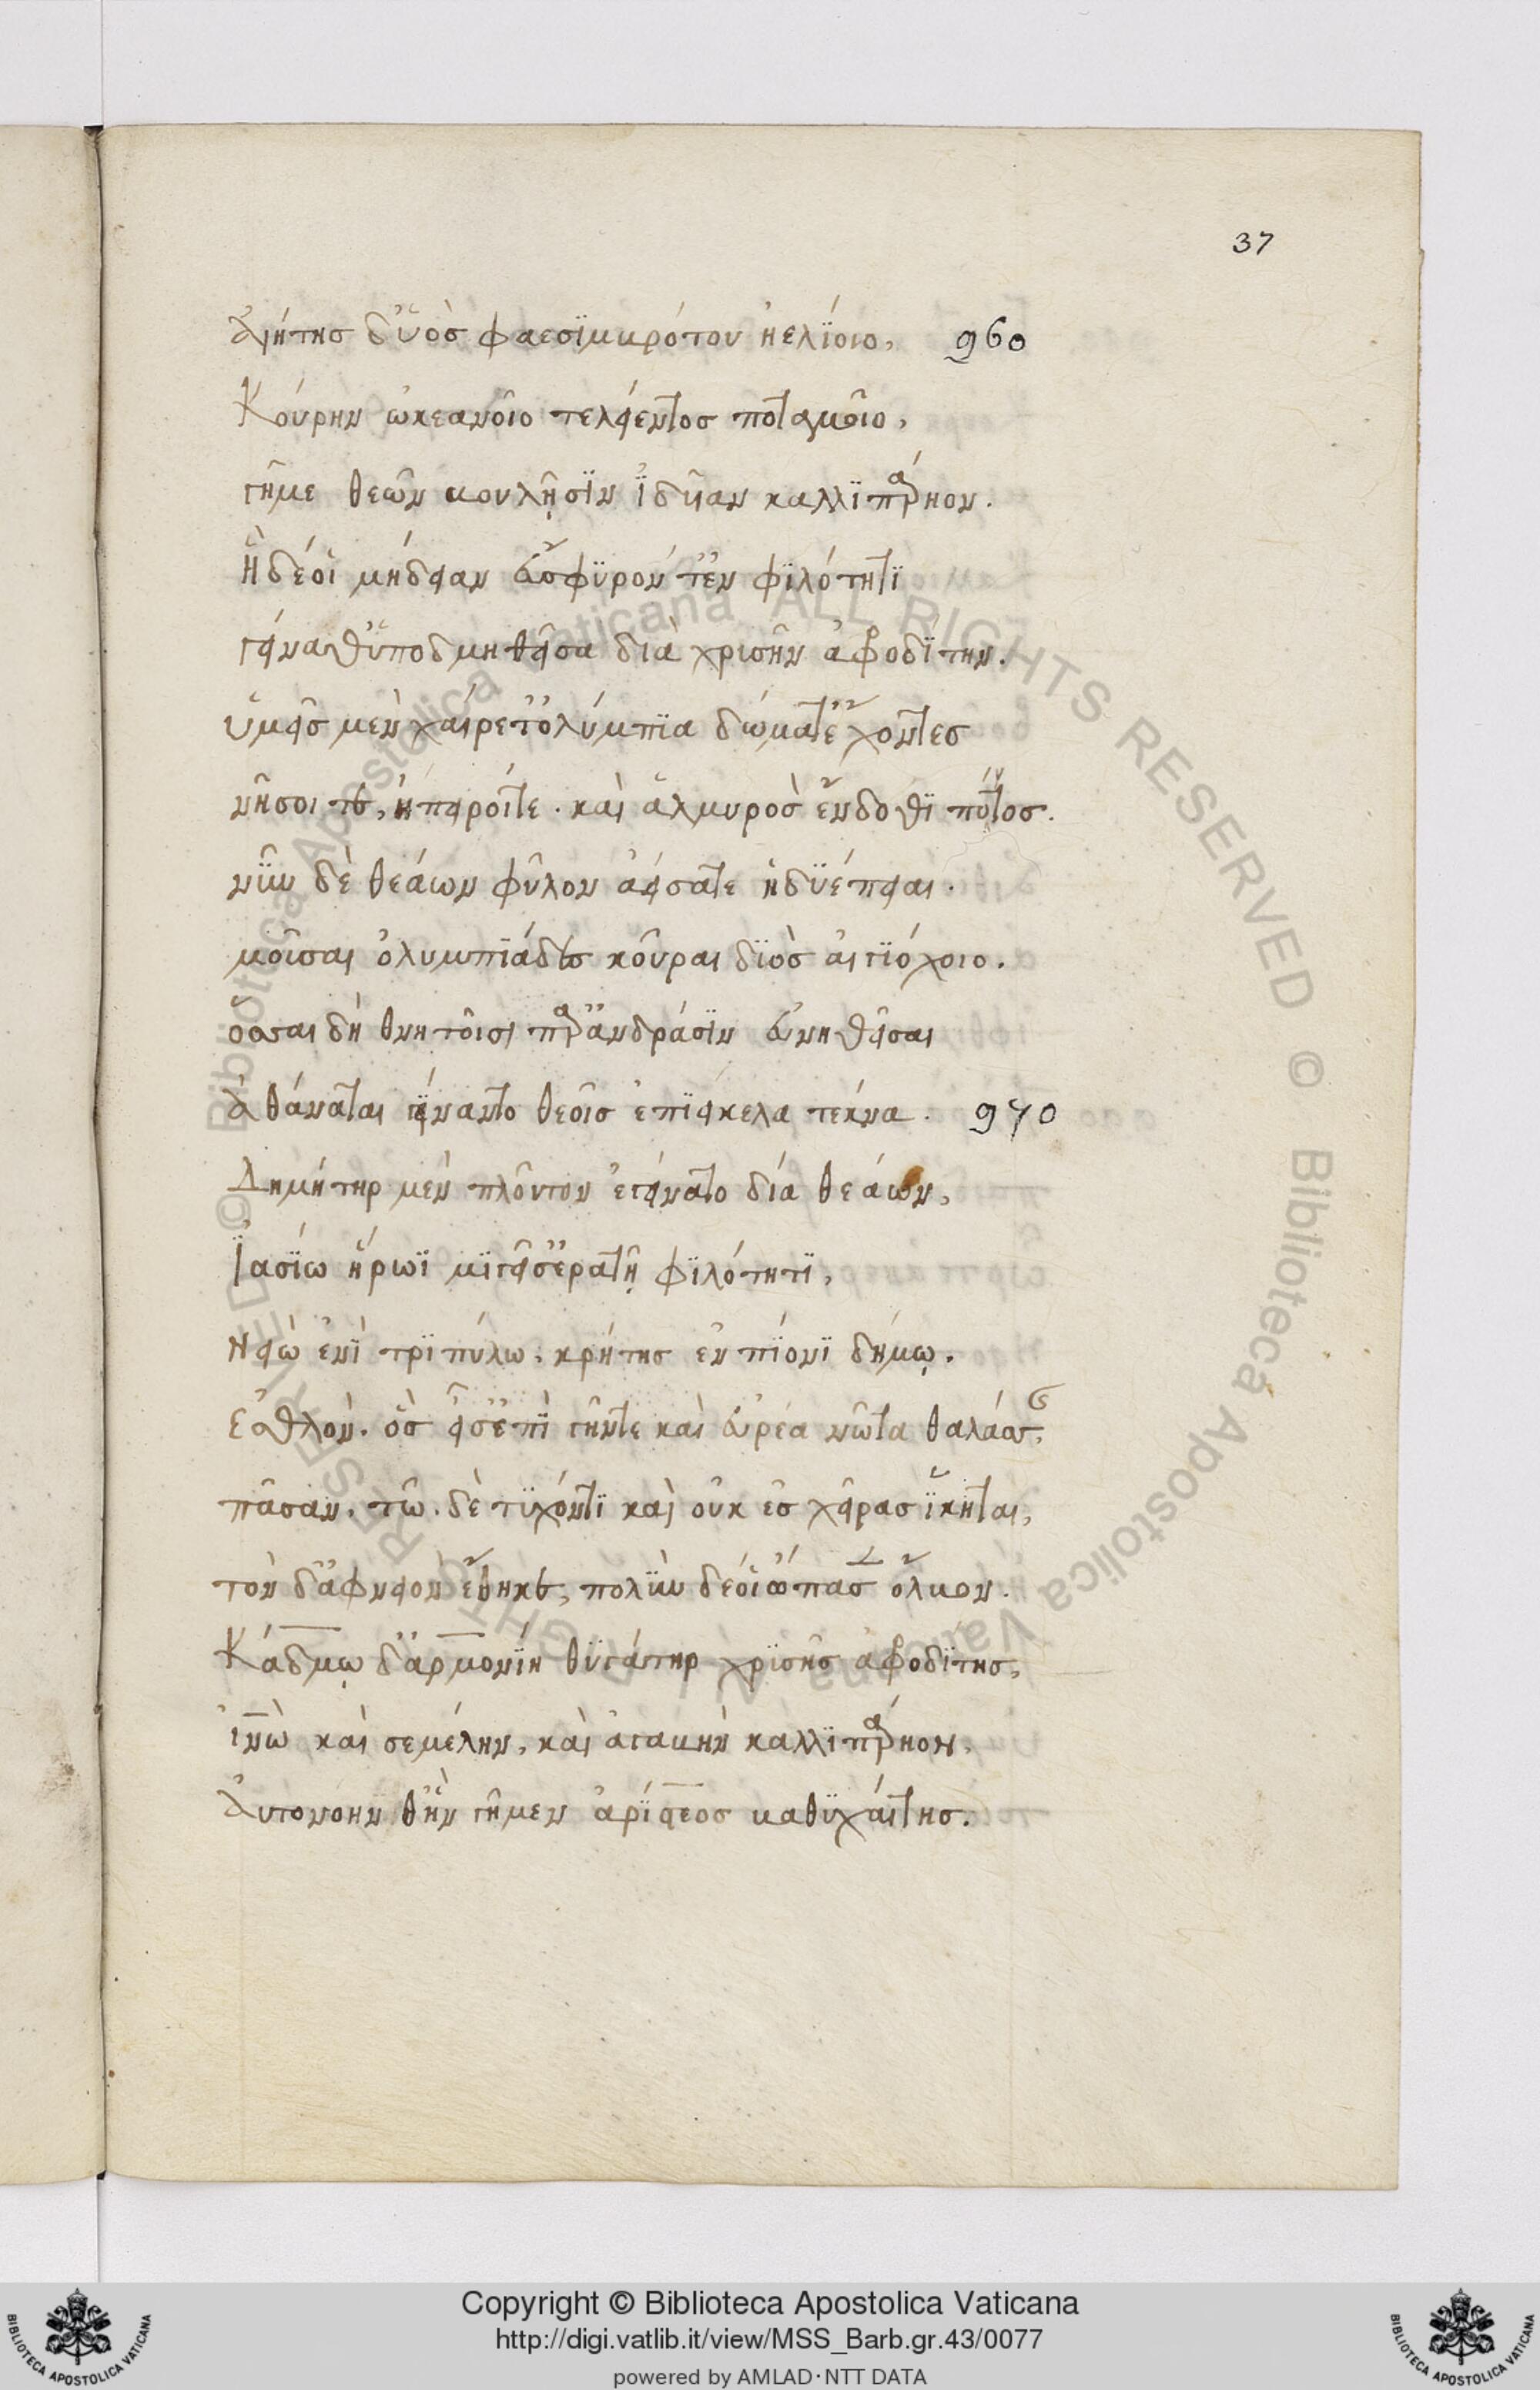 37
Ἀιήτης δ' ὑὸς φαεσϊμβρότου ἠελΐοιο, 960
Κούρην ὠκεανοῖο τελήεντος ποταμοῖο,
γῆμε θεῶν βουλῇσϊν ἰδῦαν καλλϊπάρηον.
Ἡ δέ οἱ μήδειαν ἐΰσφϋρον τ' ἐν φϊλότητϊ
γείναθ' ὑποδμηθεῖσα διὰ χρυσῆν ἀφροδΐτην.
ὑμεῖς μὲν χαίρετ' ὀλύμπϊα δώματ' ἔχοντες
νῆσοι τε, ἤπειροίτε. καὶ ἁλμυρὸς ἔνδοθϊ πόντος.
νῦν δὲ θεάων φῦλον ἀείσατε ἡδϋέπειαι.
μοῦσαι ὀλυμπϊάδες κοῦραι δϊὸς αἰγϊόχοιο.
ὅσσαι δὴ θνητοῖσι παρ' ἀνδράσϊν εὐνηθεῖσαι
Ἀθάναται γείναντο θεοῖς ἐπϊείκελα τέκνα. 970
Δημήτηρ μὲν πλοῦτον ἐγείνατο δῖα θεάων,
Ἰασΐω ἥρωϊ μϊγεῖσ' ἐρατῇ φϊλότητϊ,
Νειῷ ἐνὶ τρϊπόλω. κρήτης ἐν πΐονϊ δήμῳ.
Ἐσθλὸν. ὃς εἶσ' ἐπὶ γῆντε καὶ εὐρέα νῶτα θαλάσσης,
πᾶσαν. τῶ. δὲ τϋχόντϊ καὶ οὗκ ἐς χεῖρας ἵκηται,
τὸν δ' ἀφνειὸν ἔθηκε, πολὺν δέ οἱ ὤπασεν ὄλβον.
Κάδμῳ δ' ἁρμονΐη θϋγάτηρ χρϋσῆς ἀφροδΐτης,
ἰνὼ καὶ σεμέλην, καὶ ἀγαυὴν καλλϊπάρηον,
Ἀυτονόην θ' ἣν γῆμεν ἀρϊσταῖος βαθϋχαίτης.
Copyright © Biblioteca Apostolica Vaticana
http://digi.vatlib.it/view/MSS_Barb.gr.43/0077
powered by AMLAD·NTT DATA